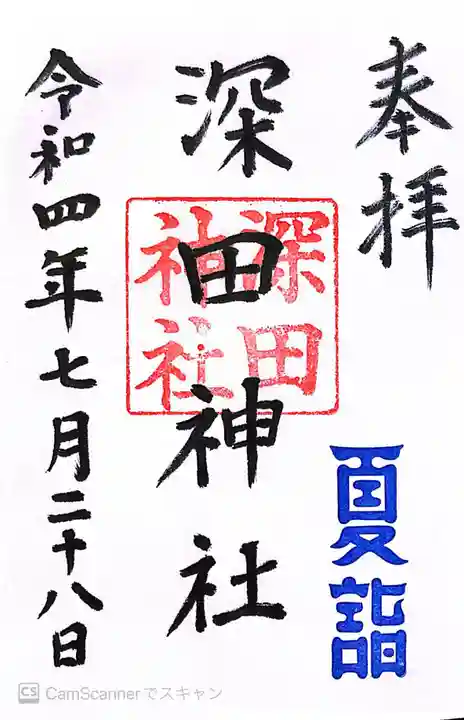 奉拝
夏詣
深田神社
深田
神社
令和四年七月二十八日
CS CamScannerでスキャン